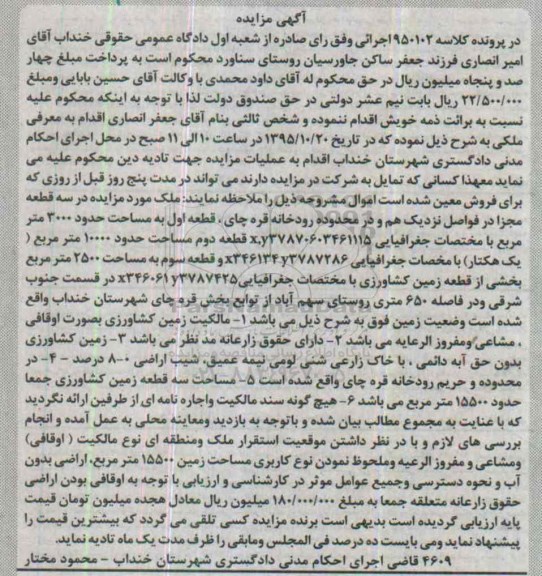 آگهی مزایده
در پرونده کلاسه ۹۵۰۱۰۲ اجرائی وفق رای صادره از شعبه اول دادگاه عمومی حقوقی خنداب آقای
امیر انصاری فرزند جعفر ساکن جاورسیان روستای سناورد محکوم است به پرداخت مبلغ چهار
صد و پنجاه میلیون ریال در حق محکوم له آقای داود محمدی با وکالت آقای حسین بابایی ومبلغ
۲۲/۵۰۰/۰۰۰ ریال بابت نیم عشر دولتی در حق صندوق دولت لذا با توجه به اینکه محکوم علیه
نسبت به برائت ذمه خویش اقدام ننموده و شخص ثالثی بنام آقای جعفر انصاری اقدام به معرفی
ملکی به شرح ذیل نموده که در تاریخ ۱۳۹۵/۱۰/۲۰ در ساعت ۱۰ الی ۱۱ صبح در محل اجرای احکام
مدنی دادگستری شهرستان خنداب اقدام به عملیات مزایده جهت تادیه دین محکوم علیه می
نماید معهذا کسانی که تمایل به شرکت در مزایده دارند می تواند در مدت پنج روز قبل از روزی که
برای فروش معین شده است اموال مشروحه ذیل را ملاحظه نمایند: ملک مورد مزایده در سه قطعه
مجزا در فواصل نزدیک هم و در محدوده رودخانه قره چای ، قطعه اول به مساحت حدود ۳۰۰۰ متر
مربع با مختصات جغرافیایی x,y۳۷۸۷۰۶۰۳۴۶۱۱۱۵ قطعه دوم مساحت حدود ۱۰۰۰۰ متر مربع (
یک هکتار) با مخصات جغرافیایی x۳۴۶۱۳۴ y۳۷۸۷۲۸۶ و قطعه سوم به مساحت ۲۵۰۰ متر مربع
بخشی از قطعه زمین کشاورزی با مختصات جغرافیایی x۳۴۶۰۶۱ y۳۷۸۷۴۲۵ در قسمت جنوب
شرقی ودر فاصله ۶۵۰ متری روستای سهم آباد از توابع بخش قره چای شهرستان خنداب واقع
شده است وضعیت زمین فوق به شرح ذیل می باشد ۱- مالکیت زمین کشاورزی بصورت اوقافی
، مشاعی ومفروز الرعایه می باشد ۲- دارای حقوق زارعانه مد نظر می باشد ۳- زمین کشاورزی
بدون حق آبه دائمی ، با خاک زارعی شنی لومی نیمه عمیق، شیب اراضی ۰-۸ درصد ۴- در
محدوده و حریم رودخانه قره چای واقع شده است ۵- مساحت سه قطعه زمین کشاورزی جمعا
حدود ۱۵۵۰۰ متر مربع می باشد ۶- هیچ گونه سند مالکیت واجاره نامه ای از طرفین ارائه نگردید
که با عنایت به مجموع مطالب بیان شده و باتوجه به بازدید ومعاینه محلی به عمل آمده و انجام
بررسی های لازم و با در نظر داشتن موقعیت استقرار ملک ومنطقه ای نوع مالکیت ( اوقافی)
ومشاعی و مفروز الرعیه وملحوظ نمودن نوع کاربری مساحت زمین ۱۵۵۰۰ متر مربع، اراضی بدون
آب و نحوه دسترسی وجمیع عوامل موثر در کارشناسی و ارزیابی با توجه به اوقافی بودن اراضی
حقوق زارعانه متعلقه جمعا به مبلغ ۱۸۰/۰۰۰/۰۰۰ میلیون ریال معادل هجده میلیون تومان قیمت
پایه ارزیابی گردیده است بدیهی است برنده مزایده کسی تلقی می گردد که بیشترین قیمت را
پیشنهاد نماید ومی بایست ده درصد فی المجلس ومابقی را ظرف مدت یک ماه تادیه نماید.
۴۶۰۹ قاضی اجرای احکام مدنی دادگستری شهرستان خنداب - محمود مختار